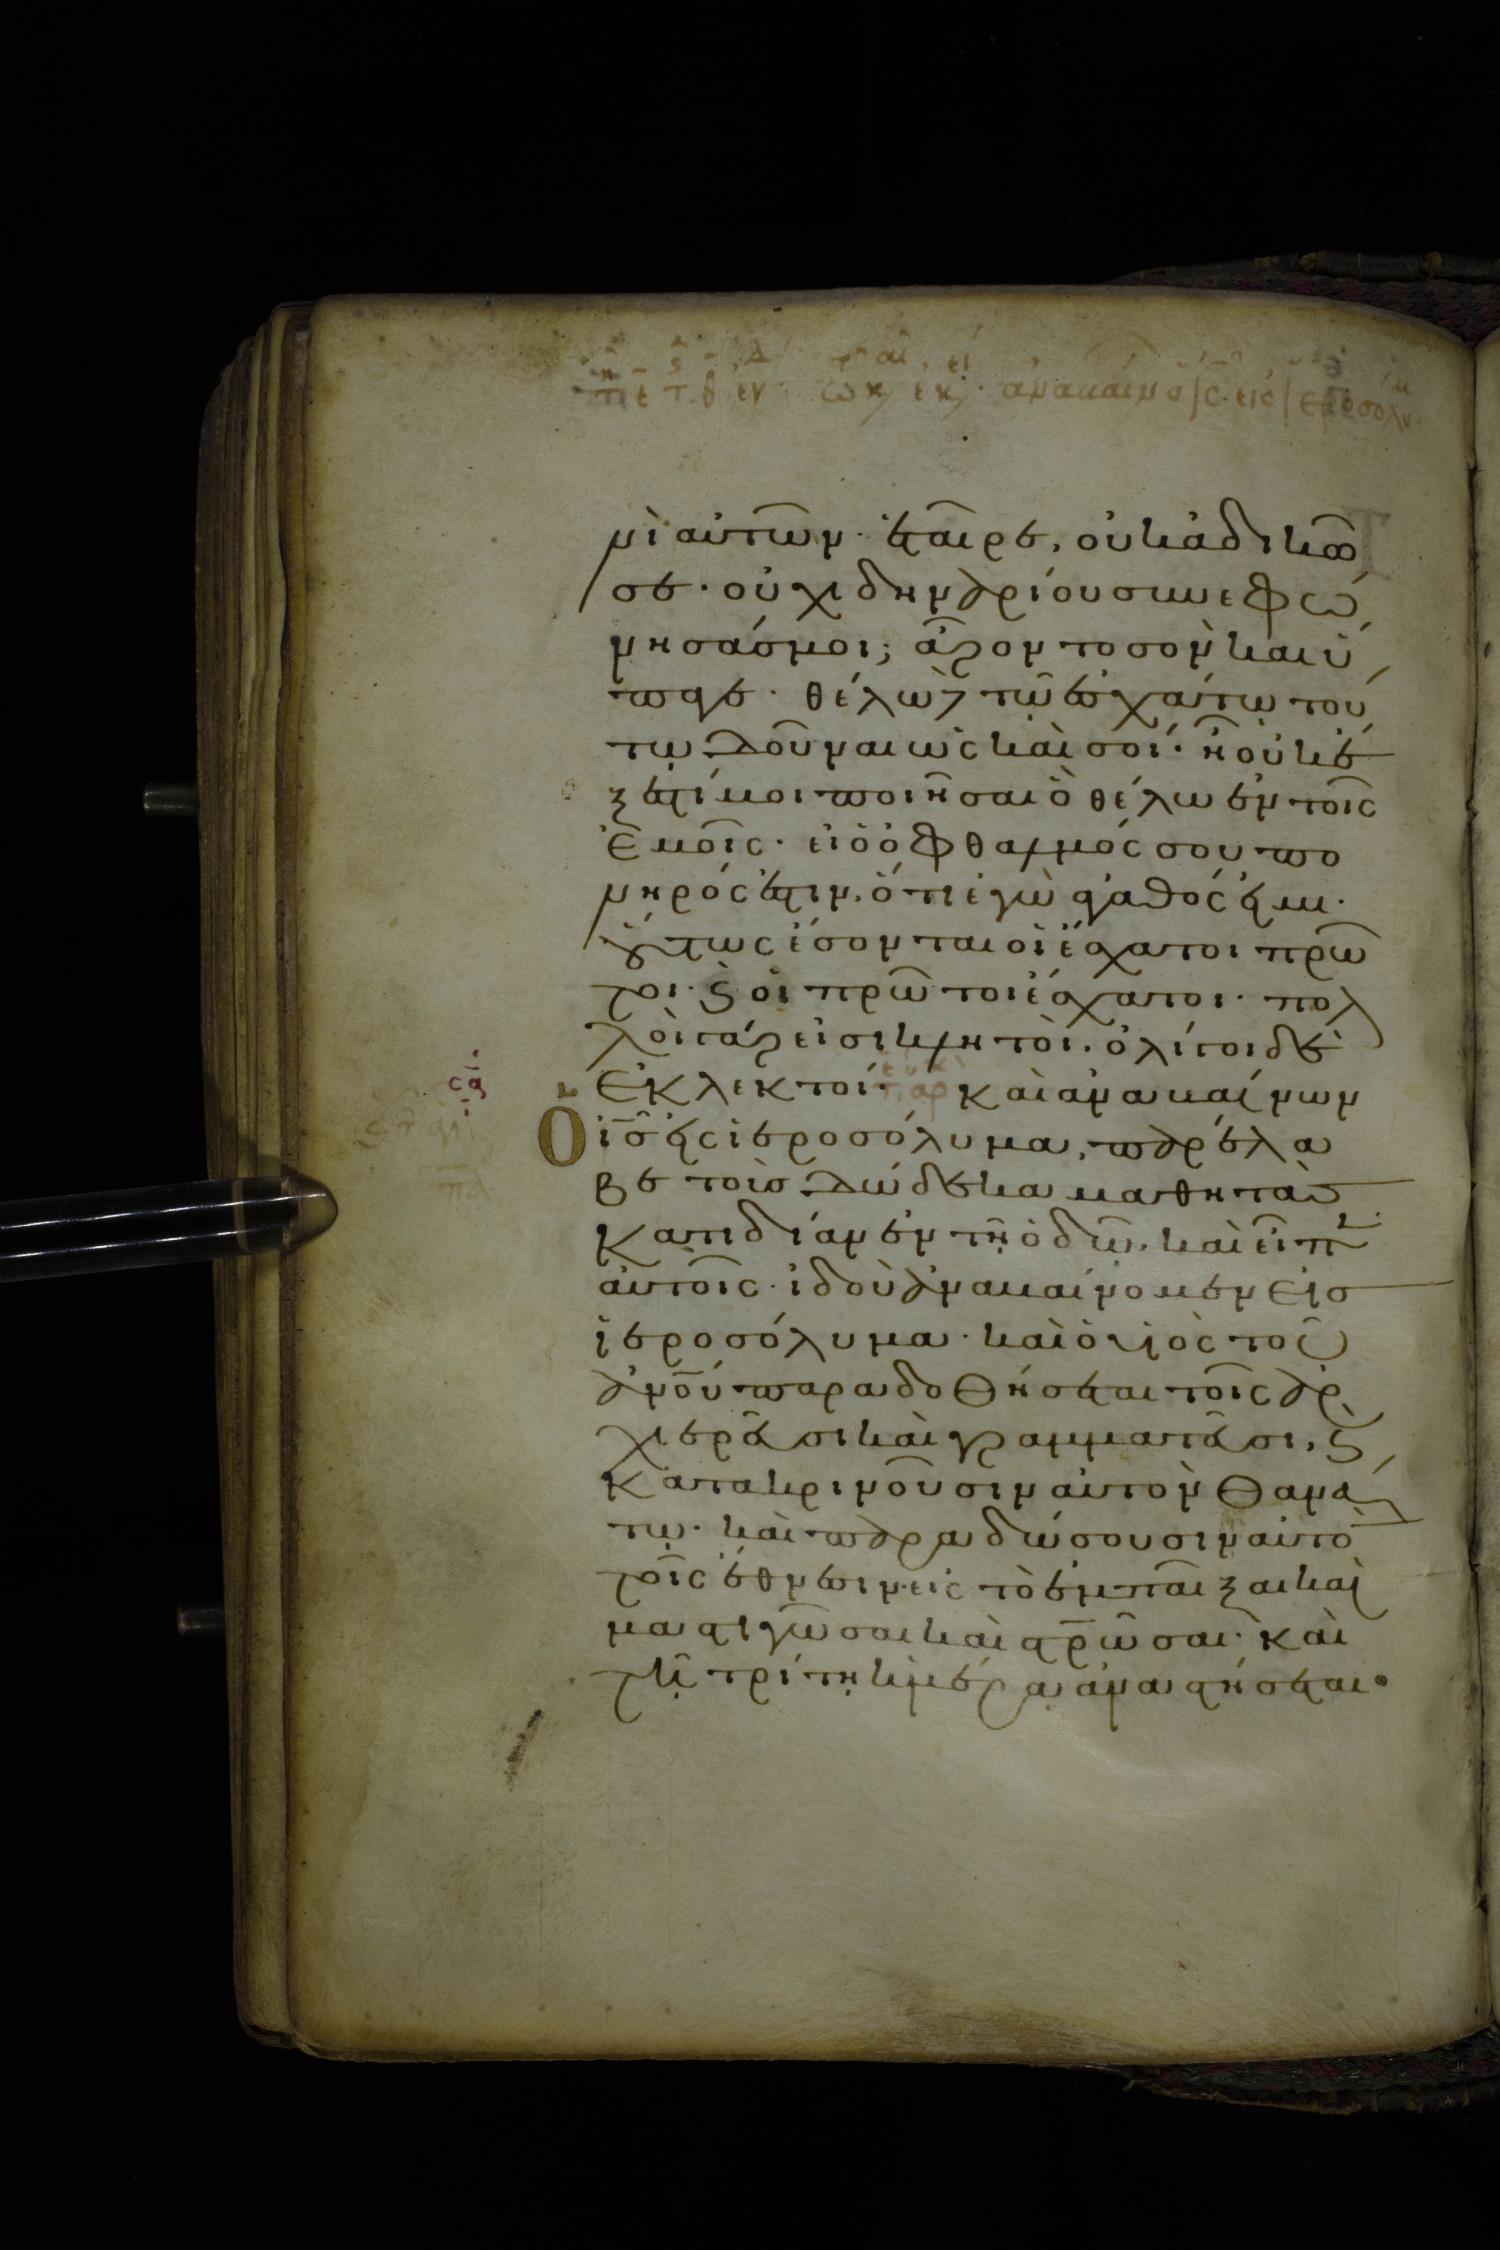 νὶ αὐτῶν· ἑταῖρε, οὐκ ἀδικῶ
σε· οὐχὶ δηναρίου συνεφώ
νησάς μοι; ἆρον τὸ σὸν καὶ ὕ
παγε· θέλω δὲ τῷ ἐσχάτῳ τού
τῳ δοῦναι ὡς καὶ σοί· ἢ οὐκ ἔ
ξεστί μοι ποιῆσαι ὃ θέλω ἐν τοῖς
ἐμοῖς· εἰ ὁ ὀφθαλμός σου πο
νηρός ἐστιν, ὅτι ἐγὼ ἀγαθός εἰμι·
οὕτως ἔσονται οἱ ἔσχατοι πρῶ
τοι· ϗ οἱ πρῶτοι ἔσχατοι· πολ
λοὶ γάρ εἰσι κλητοὶ· ὀλίγοι δὲ
ἐκλεκτοί· Καὶ ἀναβαίνων
ὁ ις εἰς ἱεροσόλυμα, παρέλα
βε τοὺς δώδεκα μαθητὰς
κατιδίαν ἐν τῇ ὁδῷ, καὶ εἶπεν
αὐτοῖς· ἰδοὺ ἀναβαίνομεν εἰς
ἱεροσόλυμα· καὶ ὁ υἱὸς τοῦ
ἀνου παραδοθήσεται τοῖς ἀρ
χιερεῦσι καὶ γραμματεῦσι, ϗ
κατακρινοῦσιν αὐτὸν θανά
τῳ· καὶ παραδώσουσιν αὐτὸ
τοῖς ἔθνεσιν εἰς τὸ ἐμπαῖξαι καὶ
μαστιγῶσαι καὶ στρῶσαι· καὶ
τῇ τρίτῃ ἡμέρᾳ ἀναστήσεται·